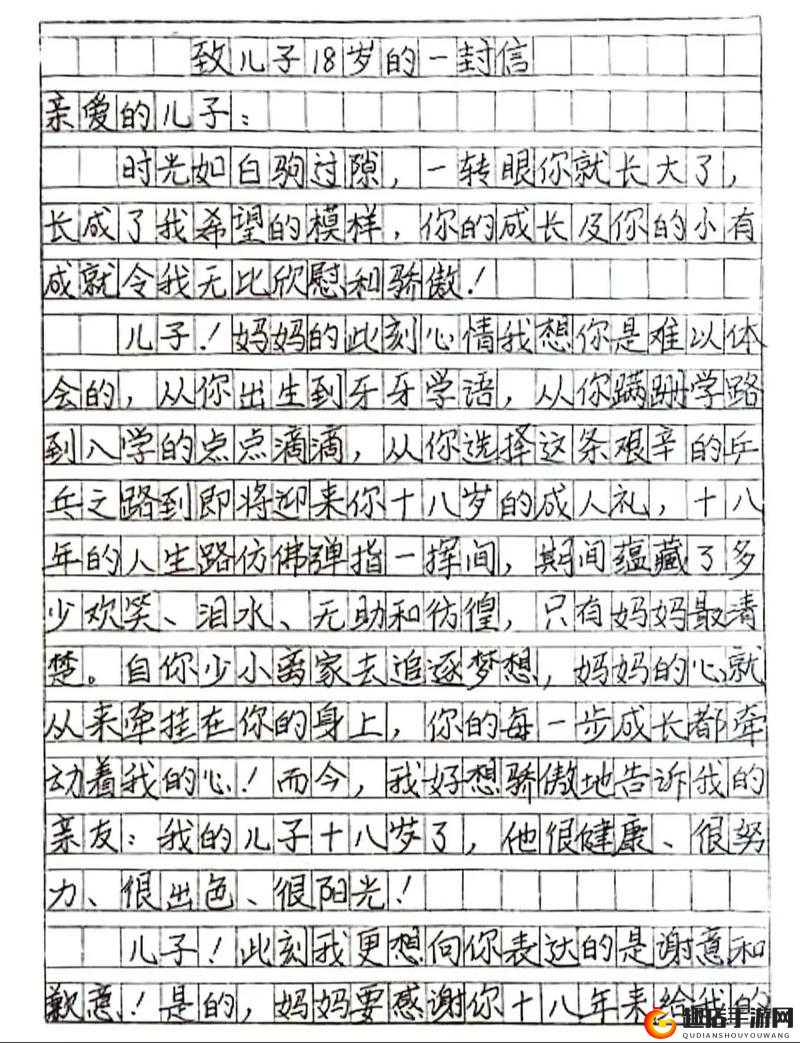 致儿子18岁的一封信
亲爱的儿子：
时光如白驹过隙，一转眼你就长大了，
长成了我希望的模样，你的成长及你的小有
成就令我无比欣慰和骄傲！
儿子！妈妈的此刻心情我想你是难以体
会的，从你出生到牙牙学语，从你蹒跚学路
到入学的点点滴滴，从你选择这条艰辛的乒
乓之路到即将迎来你十八岁的成人礼，十八
年的人生路仿佛弹指一挥间，期间蕴藏了多
少欢笑、泪水、无助和彷徨，只有妈妈最清
楚。自你少小离家去追逐梦想，妈妈的心就
从来牵挂在你的身上，你的每一步成长都牵
动着我的心！而今，我好想骄傲地告诉我的
亲友：我的儿子十八岁了，他很健康、很努
力、很出色、很阳光！
儿子！此刻我更想向你表达的是谢意和
歉意！是的，妈妈要感谢你十八年来给我的
趣店手游网
QUDIANSHOUYOUWANG